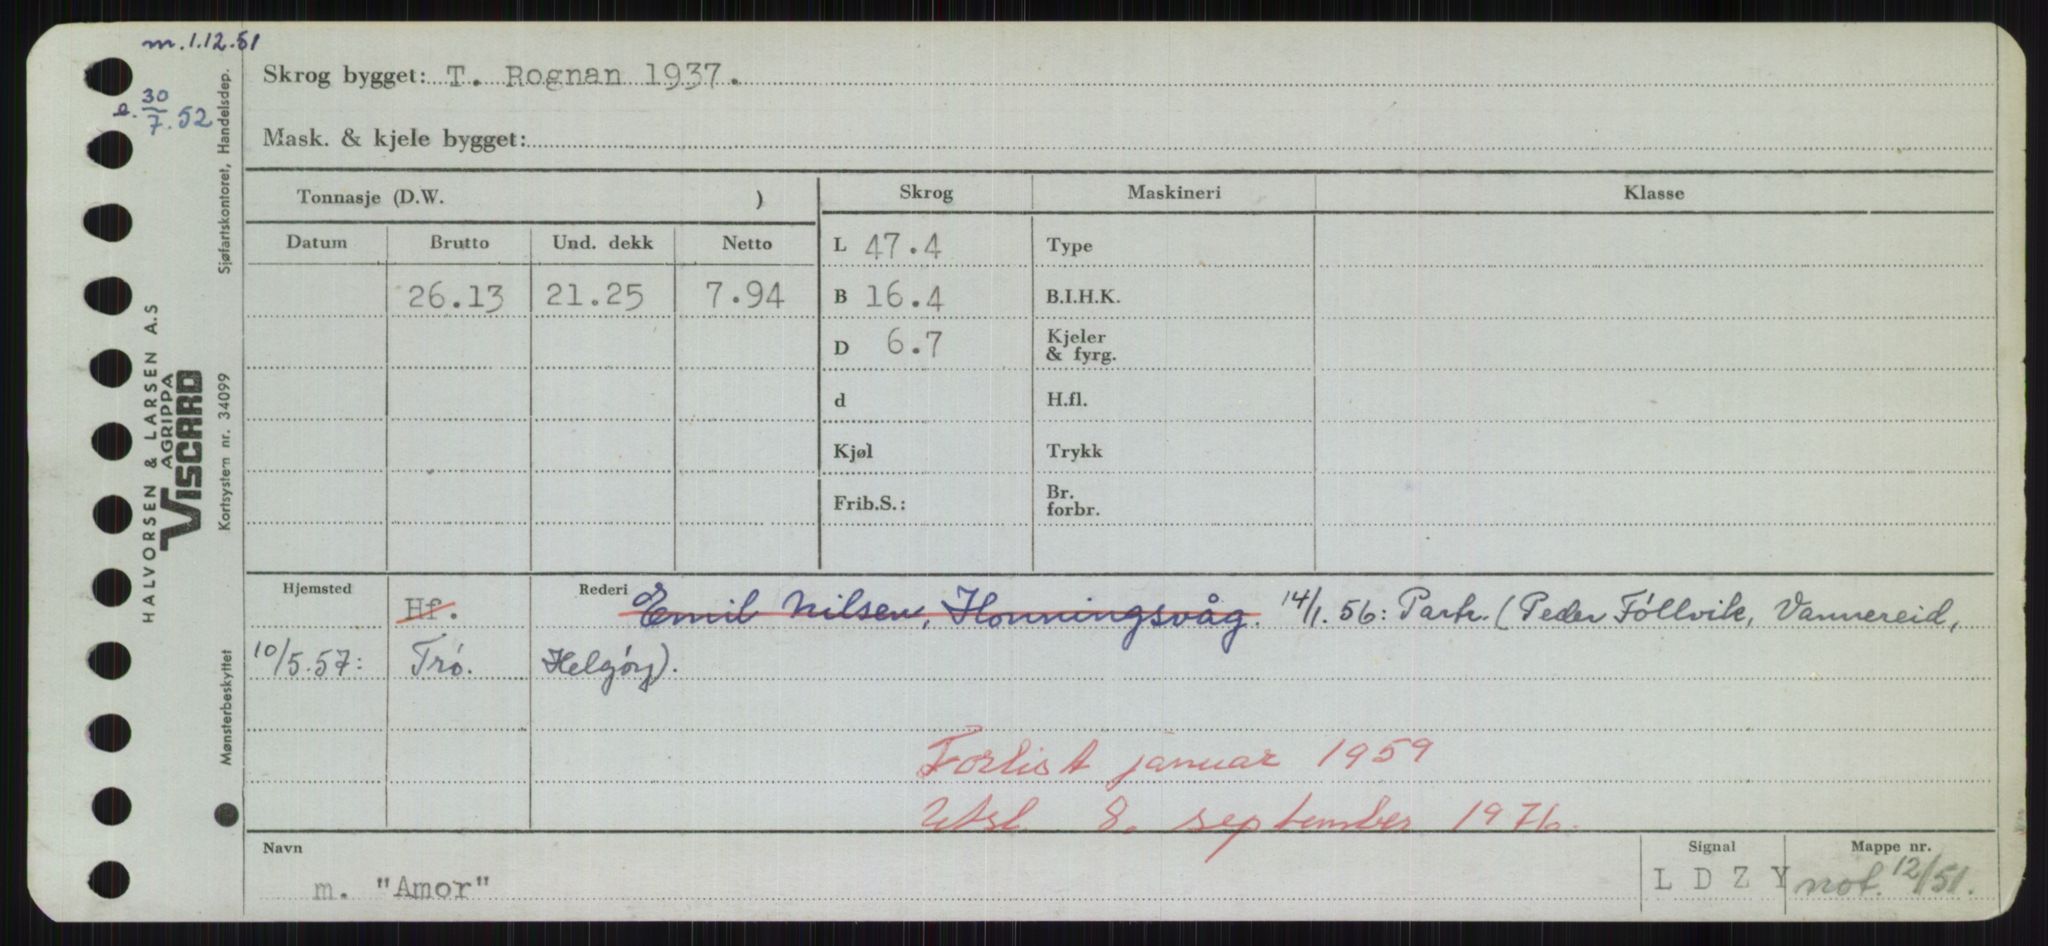 m. 1.12.51
e. 30/7.52
Skrog bygget: T. Rognan 1937.
Mask. & kjele bygget:
Tonnasje (D.W. )
Skrog Maskineri Klasse
Datum Brutto Und. dekk Netto
L 47.4 Type
26.13 21.25 7.94
B 16.4 B.I.H.K.
D 6.7 Kjeler & fyrg.
d H.fl.
Kjøl Trykk
Frib.S.: Br. forbr.
Hjemsted Hf. Rederi Emil Nilsen, Honningsvåg. 14/1.56: Partr. (Peder Föllvik, Vannereid,
10/5.57: Trö. Helgöy).
Forlist januar 1959
Utsl. 8. september 1976.
Navn Signal Mappe nr.
m. "Amor" L D Z Y not. 12/51.
HALVORSEN & LARSEN A.S
AGRIPPA
VISCARD
Mønsterbeskyttet Kortsystem nr. 34099 Sjøfartskontoret, Handelsdep.